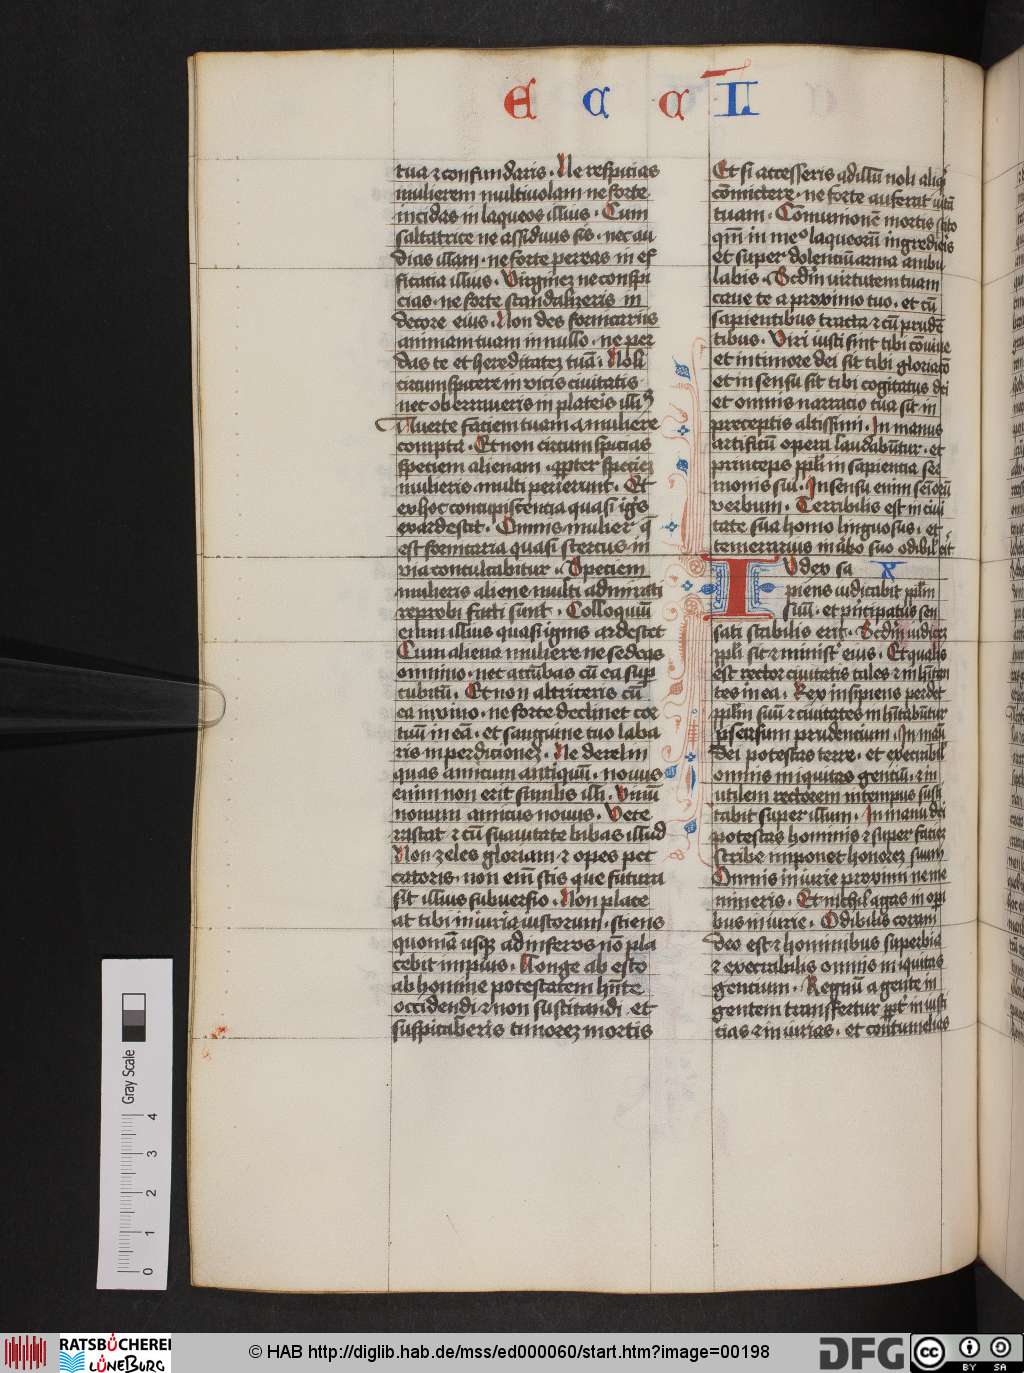 E C C LI
tua ⁊ confundaris. Ne respicias
mulierem multiuolam ne forte
incidas in laqueos illius. Cum
saltatrice ne assiduus sis. nec au
dias illam. ne forte pereas in ef
ficatia illius. Virginez ne conspi
cias. ne forte scandalizeris in
decore eius. Non des fornicariis
animam tuam in nullo. ne per
das te et hereditatez tuā. Noli
circumspicere in vicis ciuitatis
nec oberraueris in plateis illiꝰ
Auerte faciem tuam a muliere
compta. Et non circumspicias
speciem alienam. ꝓpter speciez
mulieris multi perierunt. Et
ex hoc concupiscencia quasi igīs
exardescit. Omnis mulier q̄
est fornicaria quasi stercus in
via conculcabitur. Speciem
mulieris aliene multi admirati
reprobi facti sunt. Colloquiū
enim illius quasi ignis ardescet
Cum aliena muliere ne sedeas
omnino. nec accūbas cū ea suꝑ
cubitū. Et non altriceris cū
ea in vino. ne forte declinet cor
tuū in eā. et sanguine tuo laba
ris in perdicionez. Ne derelin
quas amicum antiquū. nouus
enim non erit similis illi. Vinū
nouum amicus nouus. Vete
rascat ⁊ cū suauitate bibas illud
Non zeles gloriam ⁊ opes pec
catoris. non em̄ scis que futura
sit illius subuersio. Non place
at tibi iniuria iustorum. sciens
quoniā usqꝫ ad inferos nō pla
cebit impius. Longe ab esto
ab homine potestatem hn̄te
occidendi ⁊ non suscitandi et
suspicaberis timorez mortis
Et si accesseris ad illū noli aliqͥd
cōmictere. ne forte auferat uitā
tuam. Comunionē mortis scito
qm̄ in meͦ laqueorū ingredieris
et super dolenciū arma ambu
labis. Scdm̄ uirtutem tuam
caue te a proximo tuo. et cū
sapientibus tracta ⁊ cū prudē
tibus. Viri iusti sint tibi cōuiue
et in timore dei sit tibi gloriacō
et in sensu sit tibi cogitatus dei
et omnis narracio tua sit in
preceptis altissimi. In manus
artificū opera laudabūtur. et
princeps ppl̄i in sapiencia ser
monis sui. In sensu enim seīorū
verbum. Terribilis est in ciui
tate sua homo linguosus. et
temerarius in ūbo suo odibil̄ erit
Iudex sa X
piens iudicabit ppl̄m
suū. et pͥncipatus sen
sati stabilis erit. Scdm̄ iudicez
ppl̄i sic ⁊ ministͥ eius. Et qualis
est rector ciuitatis tales ⁊ inhītan
tes in ea. Rex insipiens perdet
ppl̄m suū ⁊ ciuitates inhītabūtur
per sensum prudencium. In manu
dei potestas terre. et execrabil̄
omnis iniquitas genciū. ⁊ in
utilem rectorem in tempus susci
tabit super illum. In manu dei
potestas hominis ⁊ super faciez
scribe imponet honorez suum
Omnis iniurie proximi ne me
mineris. Et nichil agas in oꝑi
bus iniurie. Odibilis coram
deo est ⁊ hominibus superbia
⁊ execrabilis omnis iniquitas
gencium. Regnū a gente in
gentem transfertur ꝓpt̄ iniusti
cias ⁊ iniurias. et contumelias
Gray Scale
0 1 2 3 4
RATSBÜCHEREI
LÜNEBURG
© HAB http://diglib.hab.de/mss/ed000060/start.htm?image=00198
DFG
cc BY SA